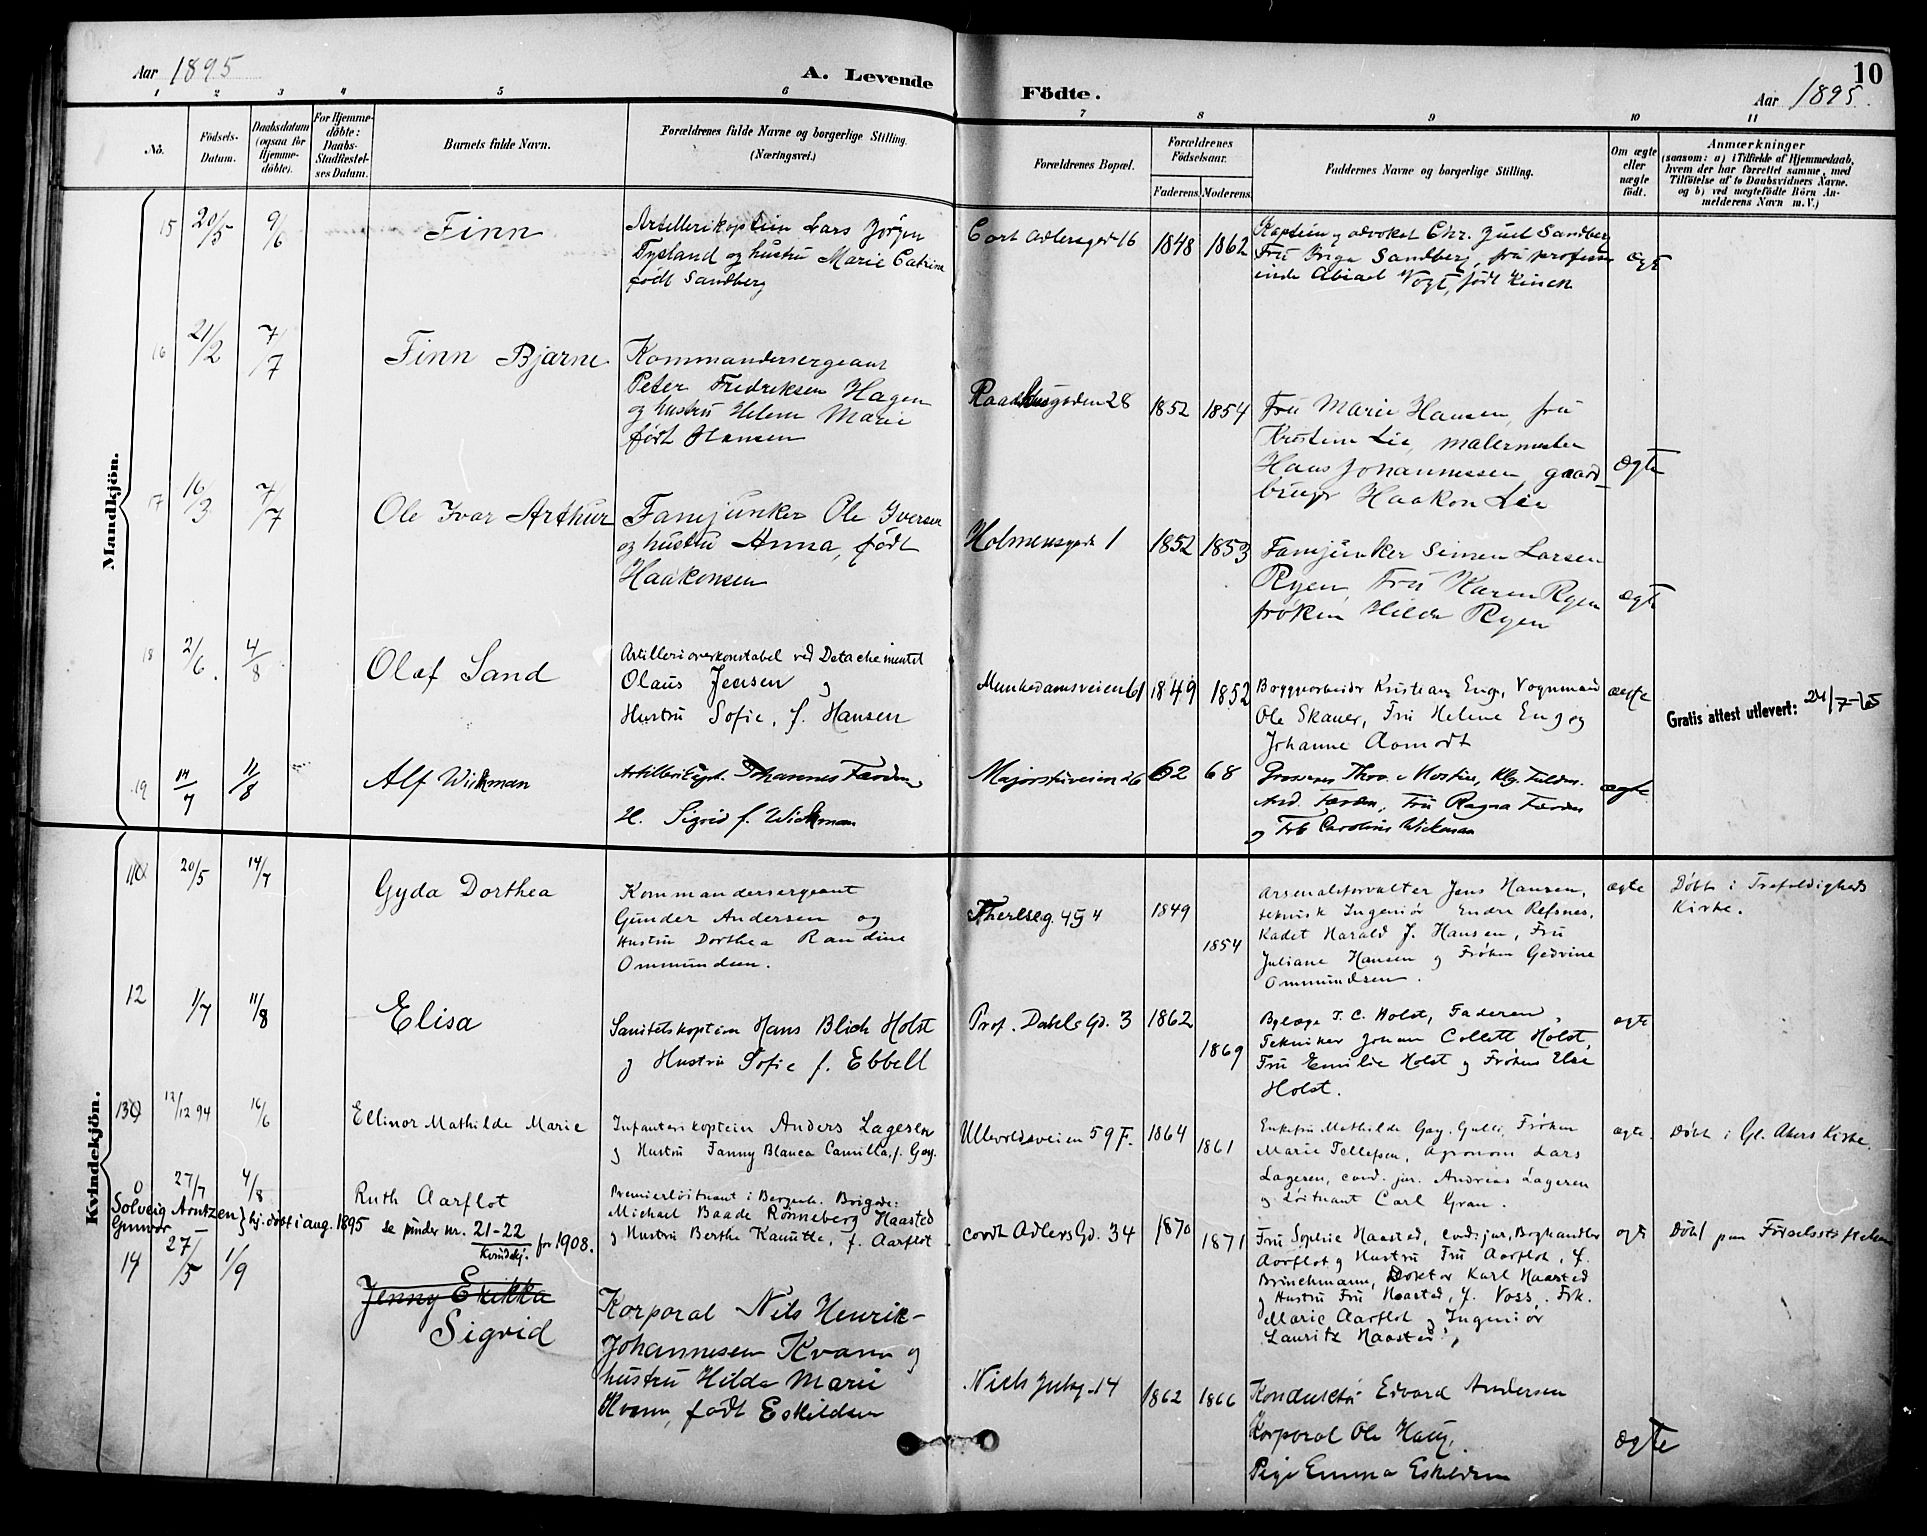 Aar 1895
A. Levende
Födte.
Aar 1895.
10
1 2 3 4 5 6 7 8 9 10 11
No.
Födsels-
Datum.
Daabsdatum
(ogsaa for
Hjemme-
döbte).
For Hjemme-
döbte:
Daabs-
Stadfæstel-
ses Datum.
Barnets fulde Navn.
Forældrenes fulde Navne og borgerlige Stilling.
(Næringsvei.)
Forældrenes Bopæl.
Forældrenes
Födselsaar.
Faderens. Moderens.
Faddernes Navne og borgerlige Stilling.
Om ægte
eller
uægte
födt.
Anmærkninger
(saasom: a) i Tilfælde af Hjemmedaab,
hvem der har forrettet samme, med
Tilföielse af to Daabsvidners Navne.
og b) ved uægtefödte Börn An-
melderens Navn m. V.)
Mandkjön.
15 20/5 9/6 Finn
Artillerikaptein Lars Jörgen
Tysland og hustru Marie Catrine
født Sandberg
Cort Adlersgad 16 1848 1862
Kaptein og advokat Chr. Juel Sandberg
Fru Inga Sandberg, fru professor
inde Abiael Vogt, født Kinck
ægt
16 21/2 7/7 Finn Bjarne
Kommandersergeant
Peter Fredriksen Hagen
og hustru Helene Marie
født Hansen
Raadhusgaden 28 1852 1854
Fru Marie Hansen, fru
Kristine Lie, malermester
Hans Johannessen gaard-
bruger Haakon Lie
ægte
17 16/3 7/7 Ole Ivar Arthur
Fanejunker Ole Iversen
og hustru Anna, født
Haakensen
Holmensgade 1 1852 1853
Fanejunker Simen Larsen
Ryen, Fru Karen Ryen
frøken Hilda Ryen
ægte
18 2/6. 4/8 Olaf Sand
Artillerioverkonstabel ved Detachementet
Olaus Jensen og
Hustru Sofie, f. Hansen
Munkedamsveien 61 1849 1852
Byggearbeider Kristian Eng, Vognmand
Ole Skauer, Fru Helene Eng og
Johanne Aamodt
ægte
Gratis attest utlevert: 24/7-65
19 14/7 11/8 Alf Wickman
Johannes Færden
H. Sigrid f. Wickman
Majorstuveien 26 62 68
And. Færden, Fru Ragna Færden
og Frk Caroline Wickman
ægte
Kvindekjön.
20/5 14/7 Gyda Dorthea
Kommandersergeant
Gunder Andersen og
Hustru Dorthea Randine
Ommundsen.
1849 1854
Arsenalsforvalter Jens Hansen,
teknisk Ingeniør Endre Refsnes,
Kadet Harald J. Hansen, Fru
Juliane Hansen og Frøken Gedvine
Ommundsen.
ægte
Døbt i Trefoldigheds
Kirke.
12 1/7 11/8 Elisa
Sanitetskaptein Hans Blich Holst
og Hustru Sofie f. Ebbell
Prof. Dahls Gd. 3 1862 1869
T. C. Holst, Faderen,
Tekniker Johan Collett Holst,
Fru Emilie Holst og Frøken Else
Holst.
ægte
13 12/12 94 16/6 Ellinor Mathilde Marie
Infanterikaptein Anders Lagesen
og Hustru Fanny Blanca Camilla, f. Gay.
Ullevoldsveien 59 F. 1864 1861
Enkefru Mathilde Gay, Frøken
Marie Tellefsen, Agronom Lars
Lagesen, cand. jur. Andreas Lagesen
og Løitnant Carl Gran.
ægte
Døbt i Gl. Akers Kirke
0 27/7 4/8 Ruth Aarflot
Premierløitnant i Bergensk. Brigade:
Michael Baade Rønneberg Haasted
og Hustru Berthe Kanutte, f. Aarflot
Solveig Arntzen } hj. døbt i aug. 1895 se pinder nr. 21-22 Kvindekj. for 1908.
Gunvor
Cordt Adlers Gd. 34 1870 1871
Fru Sophie Haasted, cand. jur, Boghandler
Aarflot og Hustru Fru Aarflot, f.
Brinchmann, Doktor Karl Haasted
og Hustru Fru Haasted, f. Voss. Frk.
Marie Aarflot og Ingeniør
Lauritz Haasted,
ægte
Døbt paa Fødselsstiftelsen
14 27/5 1/9 Jenny Erikka
Sigrid
Korporal Nils Henrik-
Johannesen Kvam og
hustru Hilda Marie
Kvam, født Eskildsen
Niels Juelsg. 14 1862 1866
Konduktør Edvard Andersen
Korporal Ole Haug,
Pige Emma Eskildsen
ægte